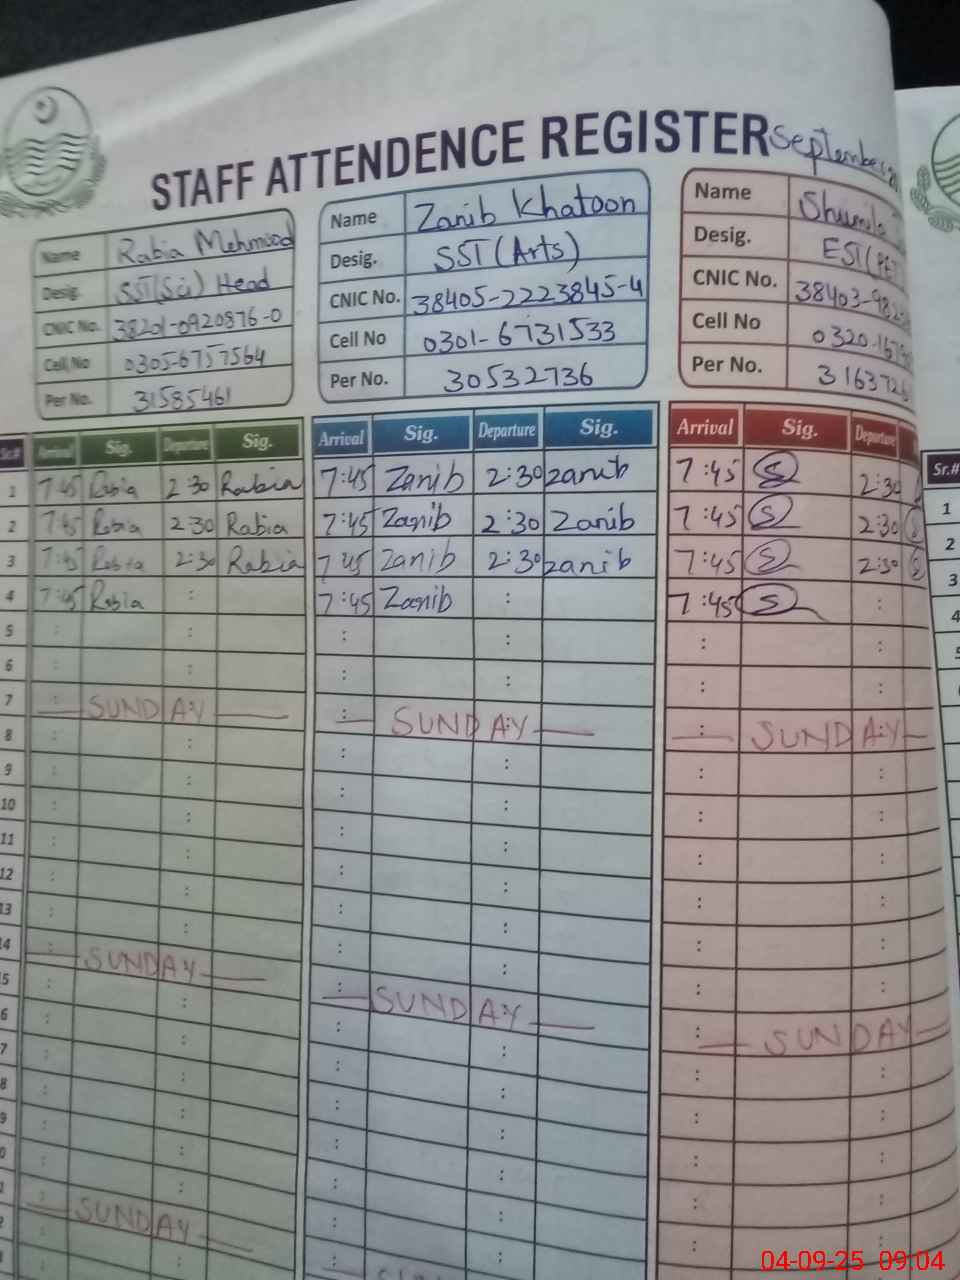 STAFF ATTENDENCE REGISTER September
Name Rabia Mehmood
Desig. SST(Sci) Head
CNIC No. 38201-0920876-0
Cell No 0305-6757564
Per No. 31585461
Name Zanib Khatoon
Desig. SST (Arts)
CNIC No. 38405-2223845-4
Cell No 0301-6731533
Per No. 30532736
Name
Desig. EST
CNIC No. 38403-
Cell No 0320-
Per No.
Sr.# Arrival Sig. Departure Sig. Arrival Sig. Departure Sig. Arrival Sig. Departure Sr.#
1 7:45 Rabia 2:30 Rabia 7:45 Zanib 2:30 zanib 7:45 S 2:30 1
2 7:45 Rabia 2:30 Rabia 7:45 Zanib 2:30 Zanib 7:45 S 2:30 S 2
3 7:45 Rabia 2:30 Rabia 7:45 Zanib 2:30 zanib 7:45 S 2:30 S 3
4 7:45 Rabia : 7:45 Zanib : 7:45 S : 4
5 : : : : : :
6 : : : : : :
7 : SUNDAY : SUNDAY : SUNDAY
8 : : : : : :
9 : : : : : :
10 : : : : : :
11 : : : : : :
12 : : : : : :
13 : : : : : :
14 : SUNDAY : SUNDAY : SUNDAY
: SUNDAY
04-09-25 09:04